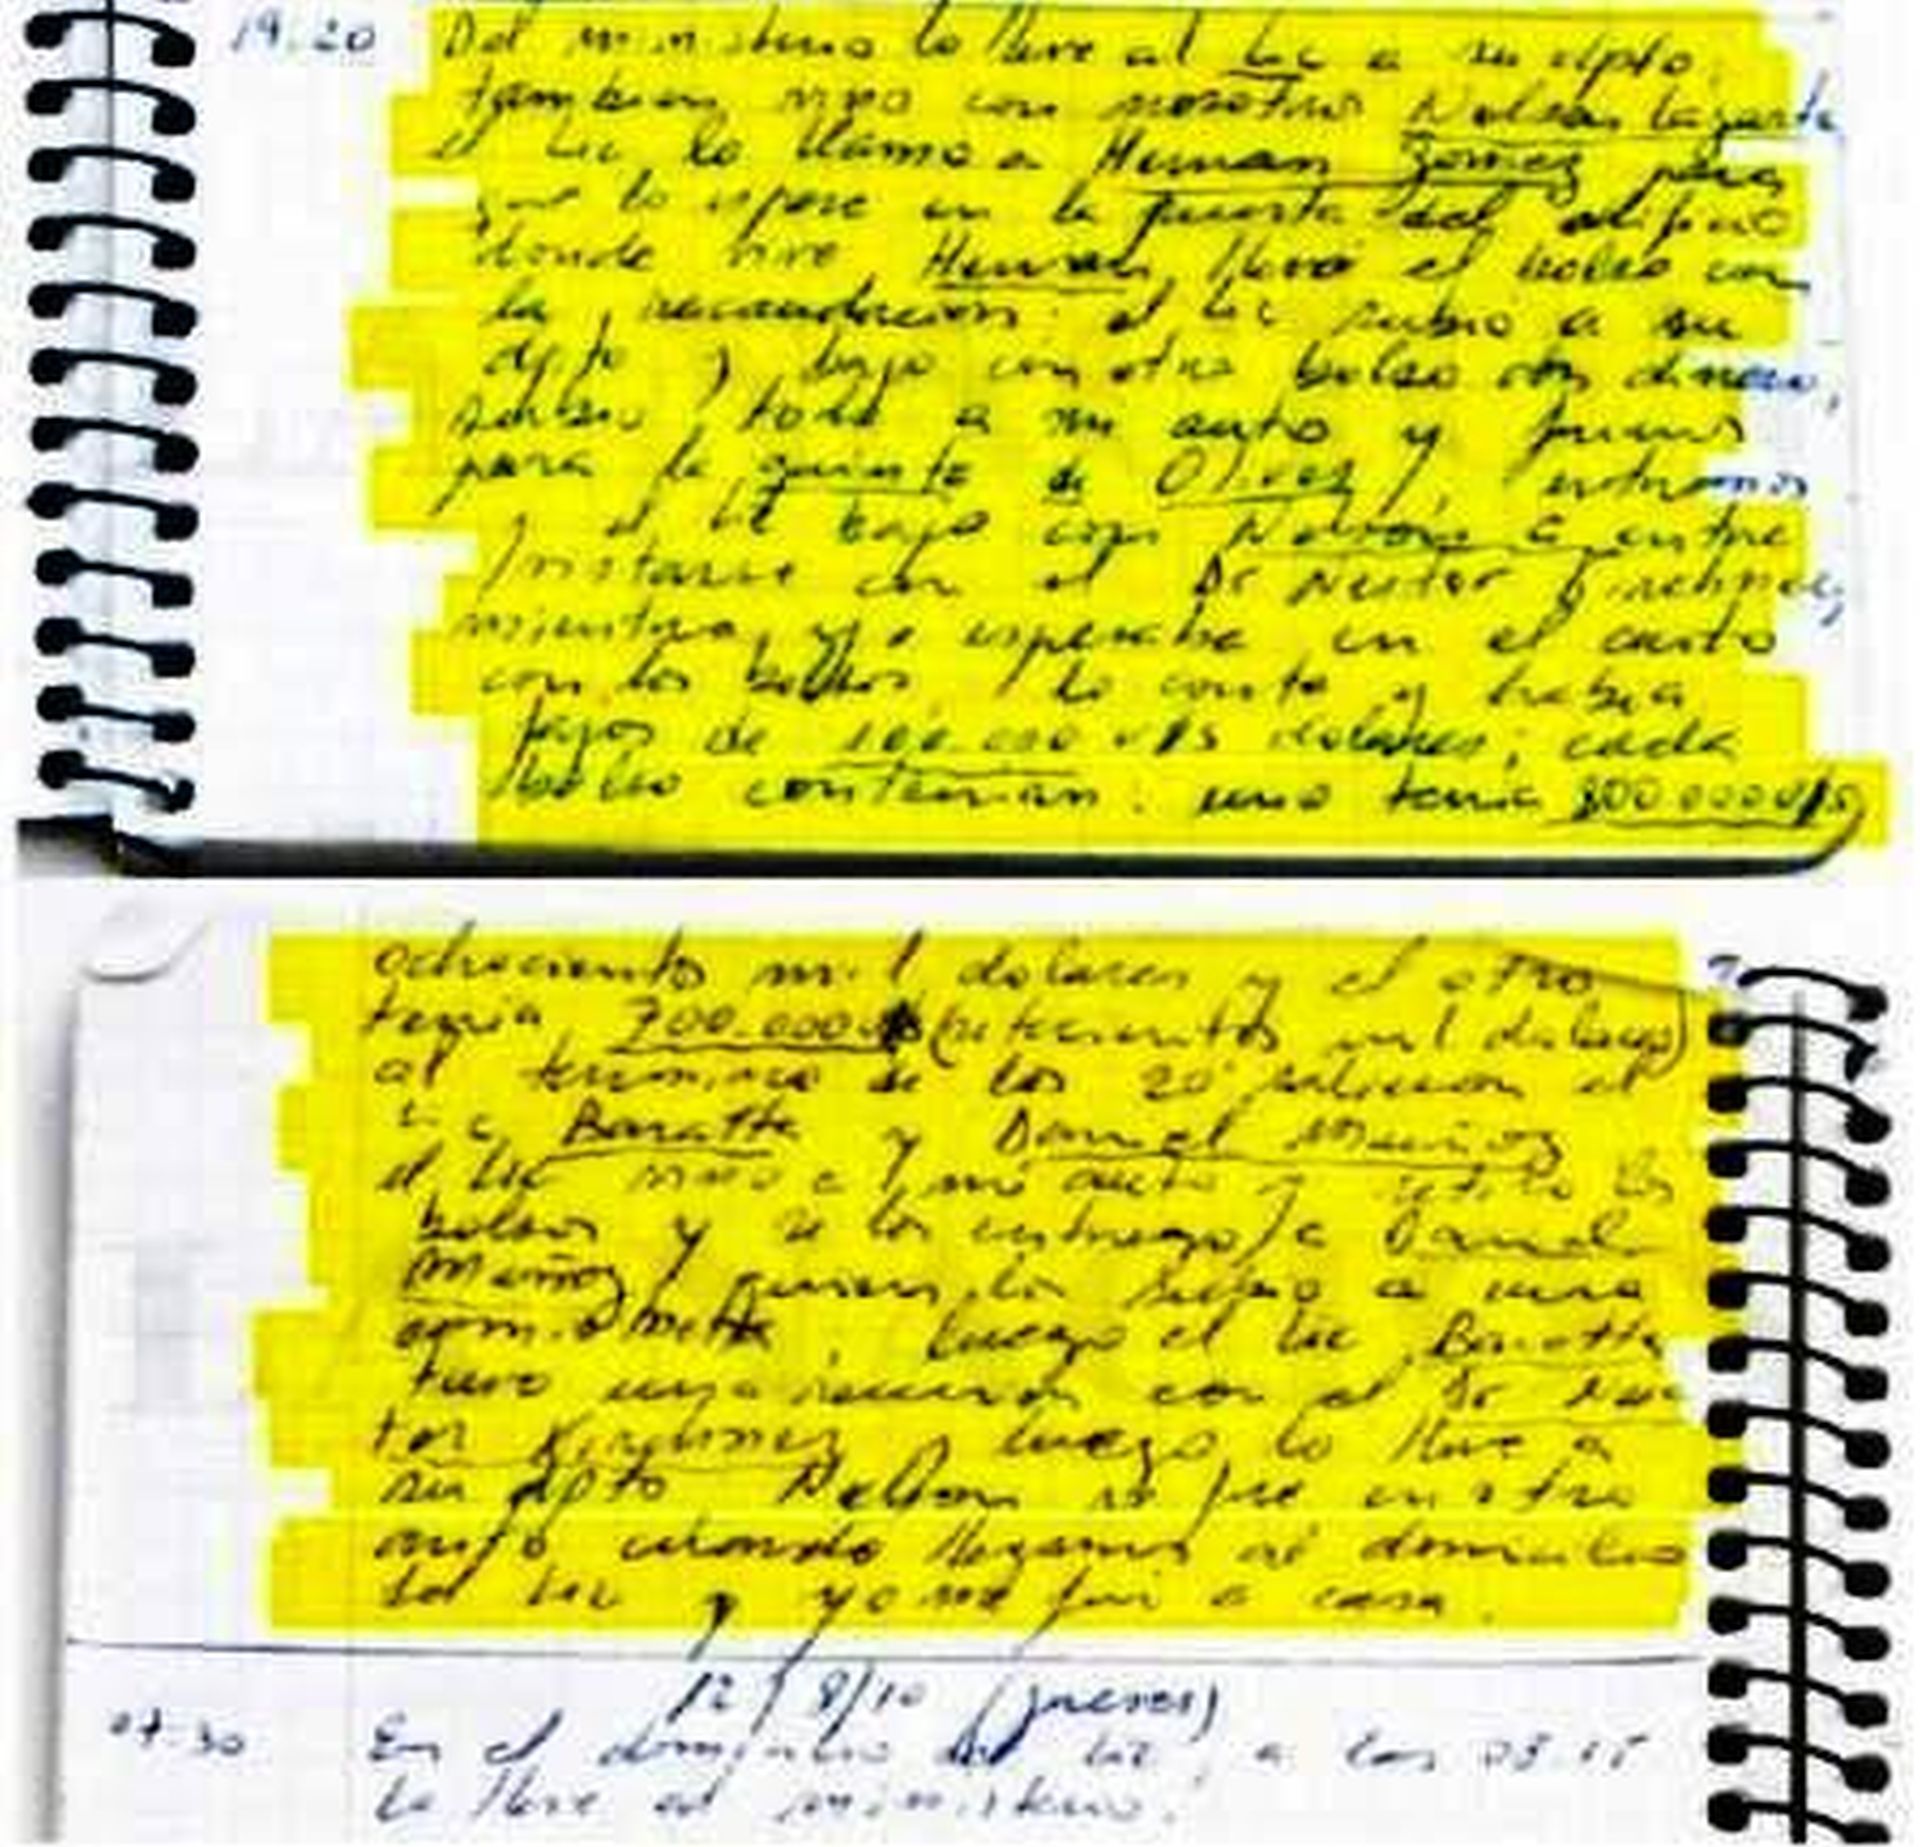 19:20 Del ministerio lo lleve al Lic a su dpto.
tambien vino con nosotros Nelson Lazarte
el Lic lo llamo a Hernan Gomez para
que lo espere en la puerta del edificio
donde vive Hernan, llevo el bolso con
la recaudacion el Lic subio a su
dpto y bajo con otro bolso con dinero,
todo a mi auto y fuimos
para la quinta de Olivos, entramos
y el Lic bajo con Nelson a entre
vistarse con el Dr Nestor Kirchner,
mientras yo esperaba en el auto
con los bolsos, lo conte y habia
fajos de 100.000 U$S dolares; cada
bolso contenian: uno tenia 800.000 U$S
ochociento mil dolares y el otro
tenia 700.000 U$S (setecientos mil dolares)
al termino de los 20' salieron el
Lic Baratta y Daniel Muñoz
el Lic vino a mi auto y retiro los
bolsos y se los entrego a Daniel
Muñoz, quien los subio a una
luego el Lic Baratta
tuvo una reunion con el Dr Nes
tor Kirchner y luego lo lleve a
su dpto Nelson se fue en otro
auto cuando llegamos al domicilio
del Lic y yo me fui a casa.
12/8/10 (jueves)
07:30 En el domicilio del Lic, a las 08.15
lo lleve al ministerio.